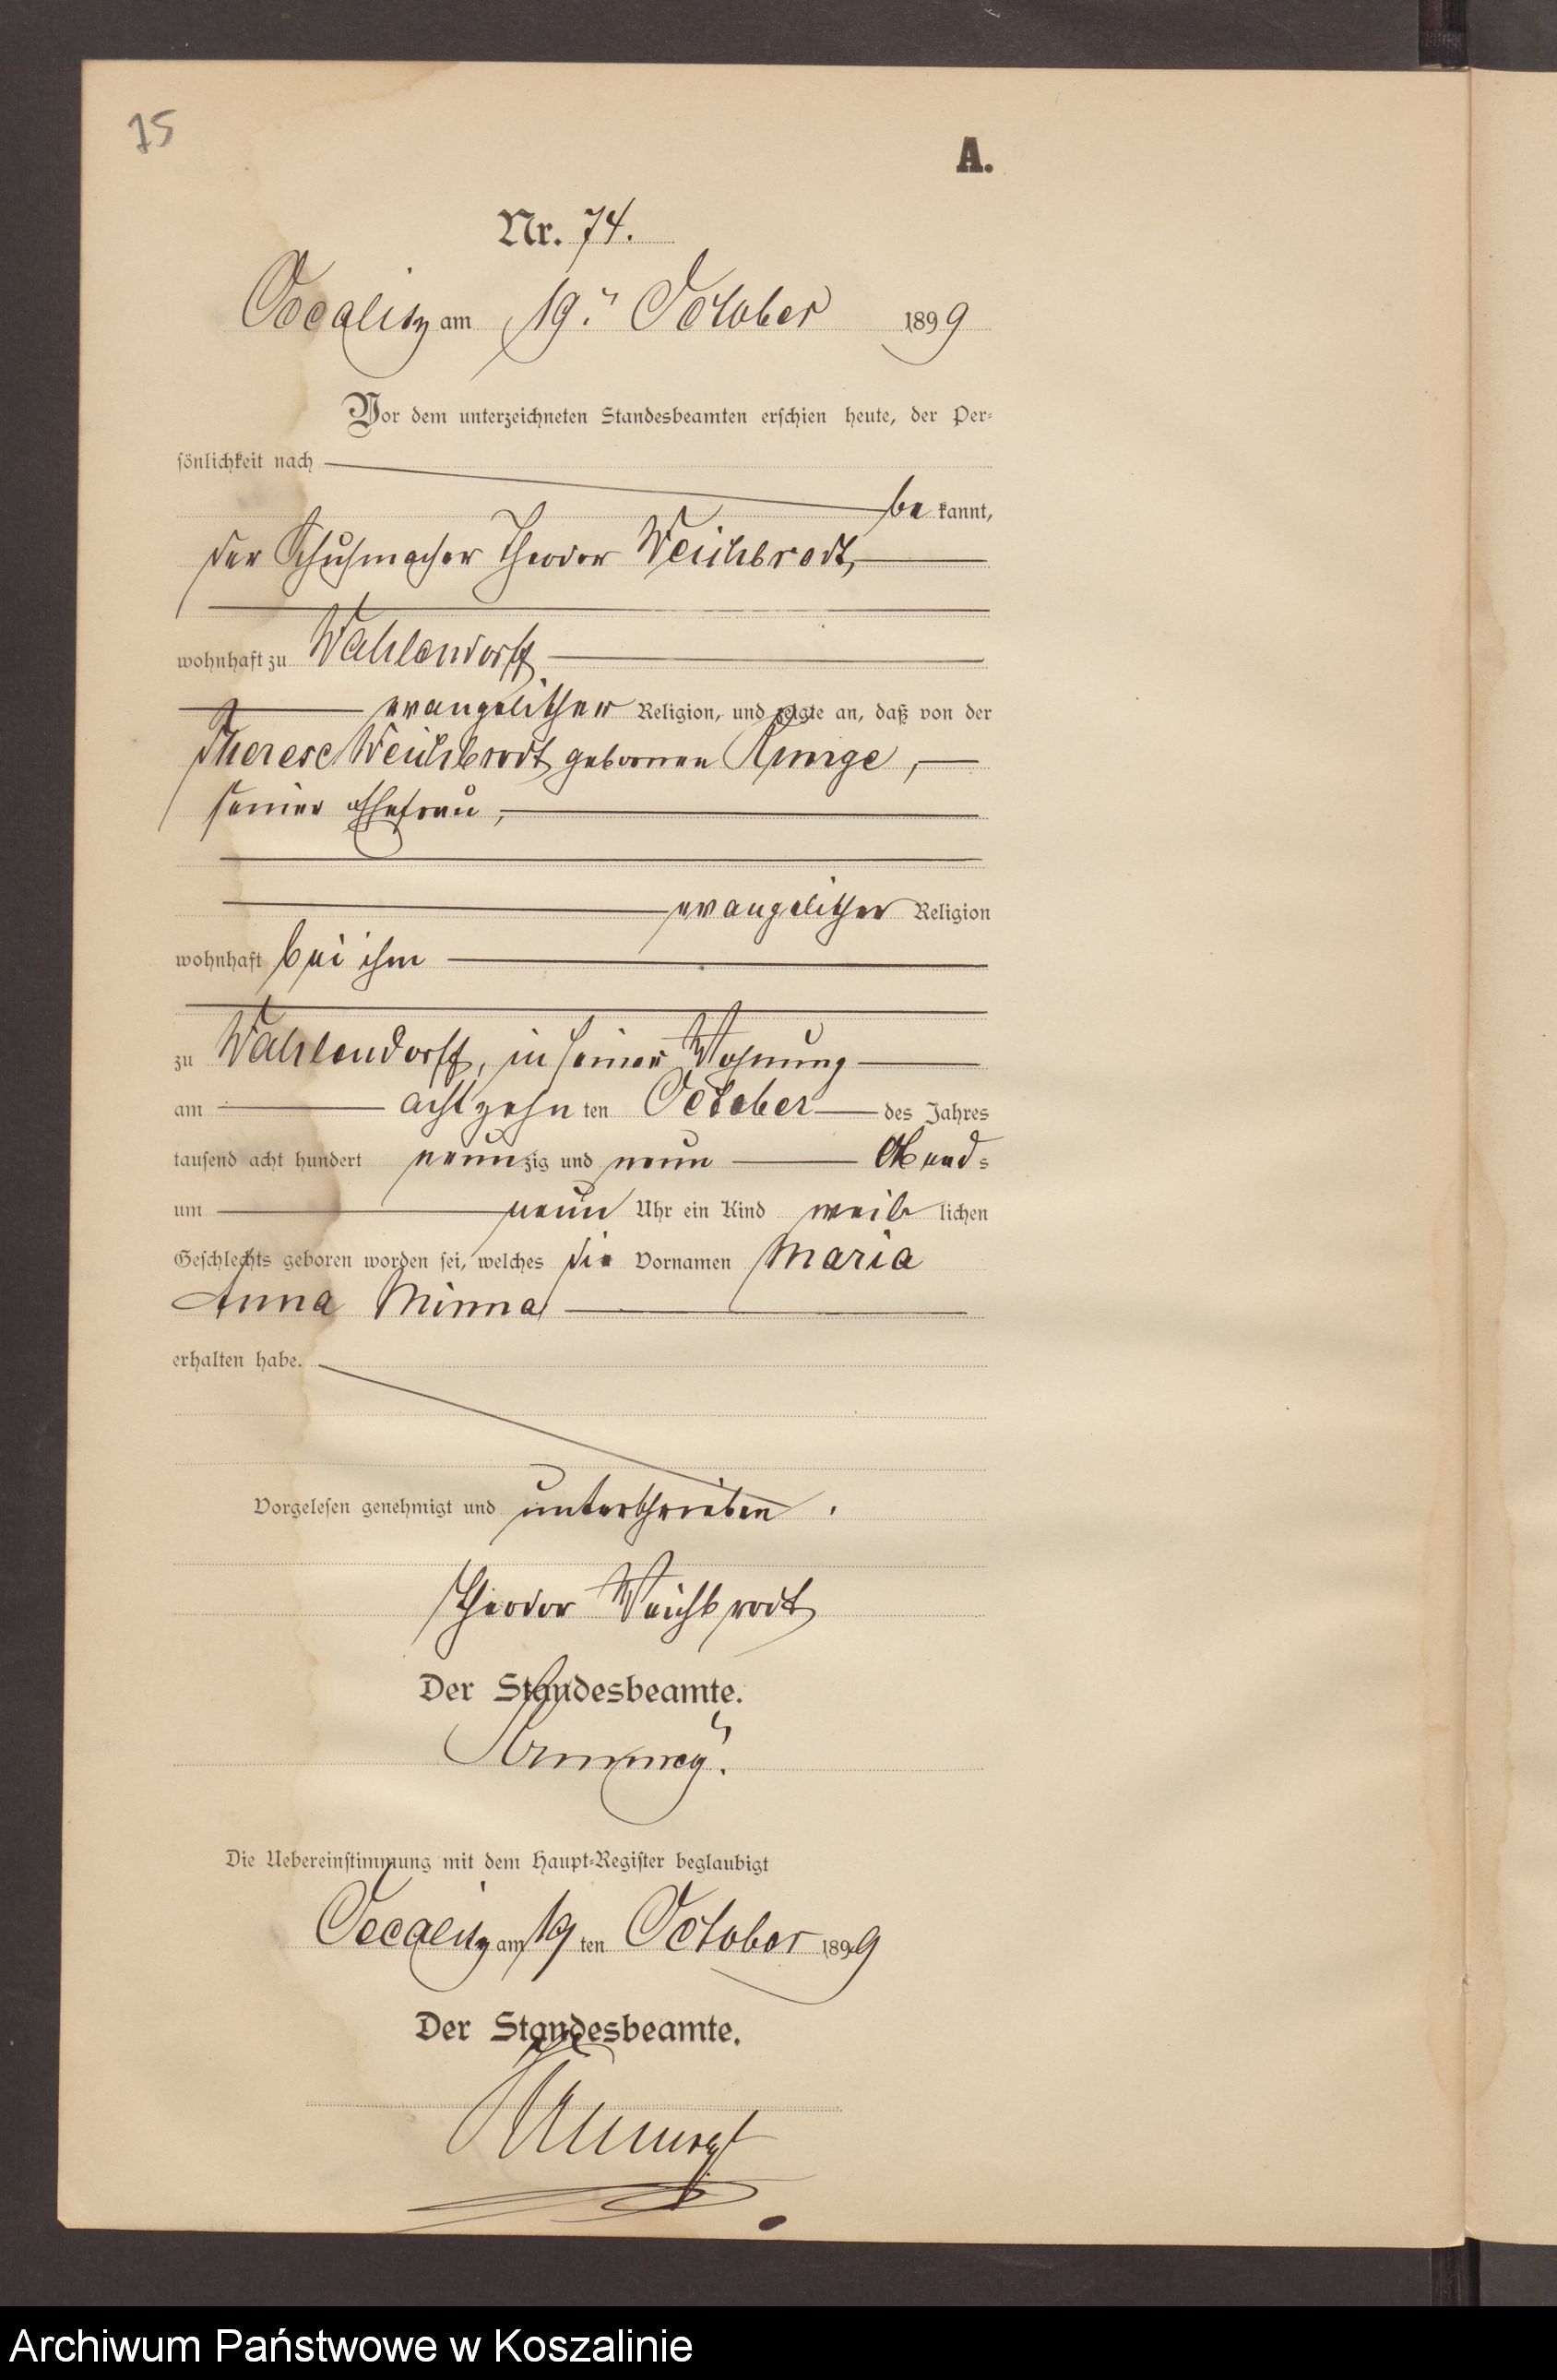 75
A.
Nr. 74.
Occalitz am 19. October 1899
Vor dem unterzeichneten Standesbeamten erschien heute, der Per-
sönlichkeit nach
be kannt,
der Schuhmacher Theodor Weichbrodt,
wohnhaft zu Wahlendorff
evangelischer Religion, und zeigte an, daß von der
Therese Weichbrodt geborenen Runge,
seiner Ehefrau,
evangelischer Religion
wohnhaft bei ihm
zu Wahlendorff, in seiner Wohnung
am achtzehn ten October des Jahres
tausend acht hundert neunzig und neun Abend-
um neun Uhr ein Kind weib lichen
Geschlechts geboren worden sei, welches die Vornamen Maria
Anna Minna
erhalten habe.
Vorgelesen genehmigt und unterschrieben.
Theodor Weichbrodt
Der Standesbeamte.
Die Uebereinstimmung mit dem Haupt-Register beglaubigt
Occalitz am 19 ten October 1899
Der Standesbeamte.
Archiwum Państwowe w Koszalinie